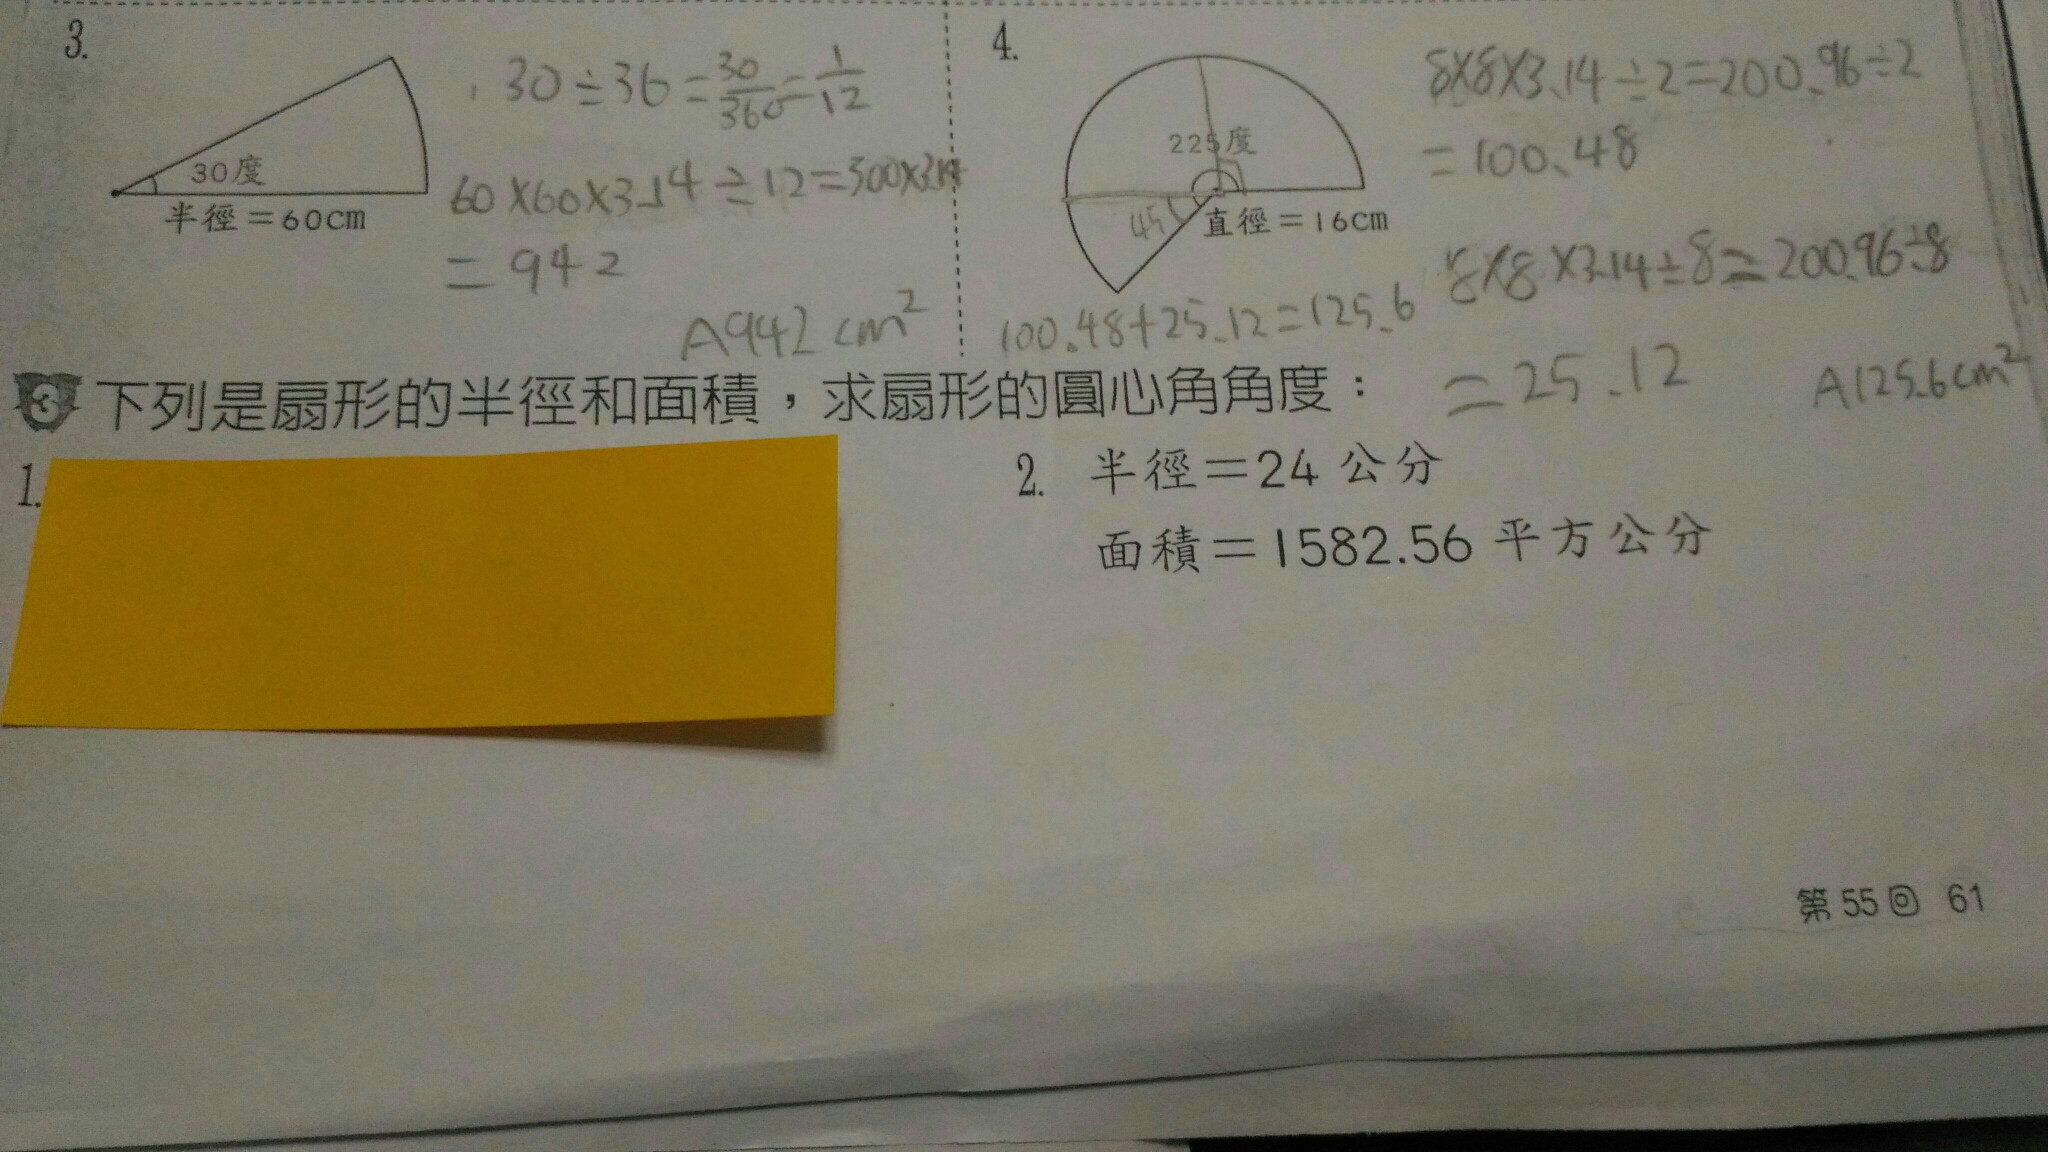 3.
30÷36=30/360=1/12
30度
半徑=60cm
60×60×3.14÷12=300×3.14
=942
A942cm²
4.
225度
45
直徑=16cm
8×8×3.14÷2=200.96÷2
=100.48
8×8×3.14÷8=200.96÷8
=25.12
100.48+25.12=125.6
A125.6cm²
3 下列是扇形的半徑和面積，求扇形的圓心角角度：
1.
2. 半徑=24公分
面積=1582.56平方公分
第55回 61